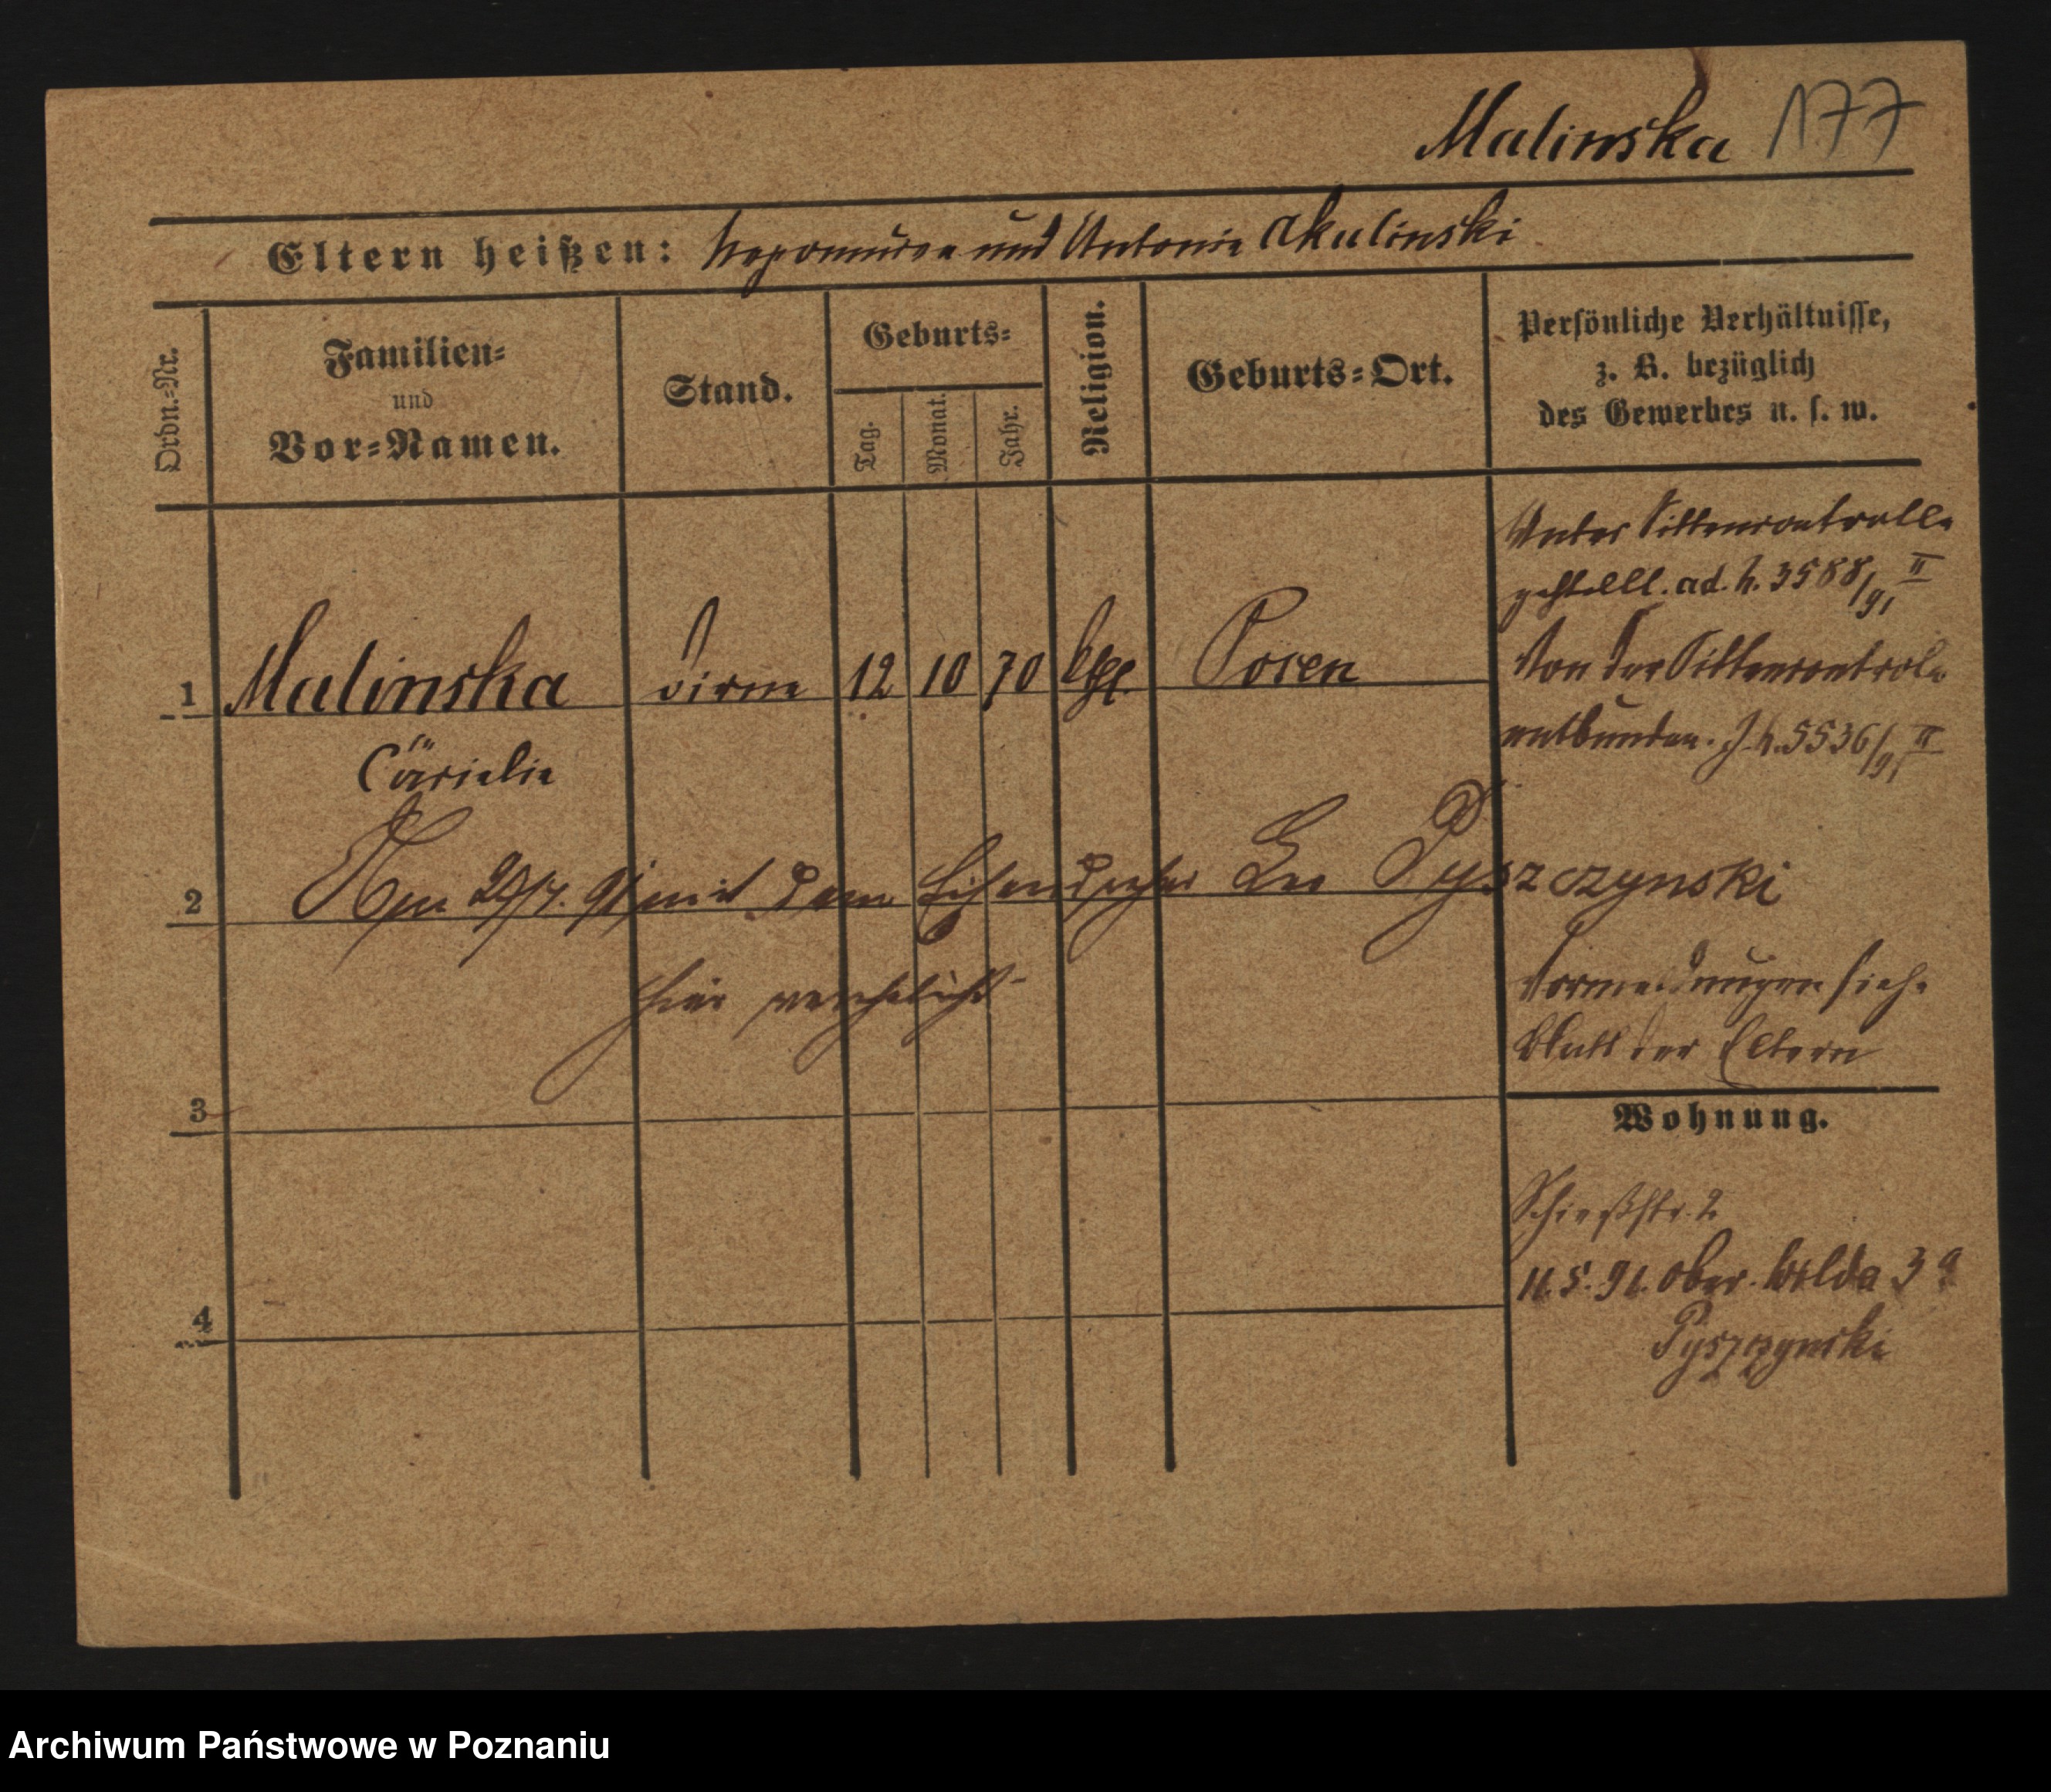 Malinska 177
Eltern heißen: Nepomucen und Antonie Malinski
Ordn.-Nr.
Familien-
und
Vor-Namen.
Stand.
Geburts-
Tag.
Monat.
Jahr.
Religion.
Geburts-Ort.
Persönliche Verhältnisse,
z. B. bezüglich
des Gewerbes u. s. w.
Unter Sittencontrolle
gestellt. ad. h. 3588/91 II
1 Malinska Dirne 12 10 70 kth. Posen
Von der Sittencontrole
entbunden. J. h. 5536/91 II
Cäcielie
2 Am 29/7. 91 mit dem Leo Pyszczynski
hier verehelicht
Vormeldungen siehe
Blatt der Eltern
3
Wohnung.
Schießstr. 2
11.5.91. Ober-Wilda 39
Pyszczynski
4
Archiwum Państwowe w Poznaniu